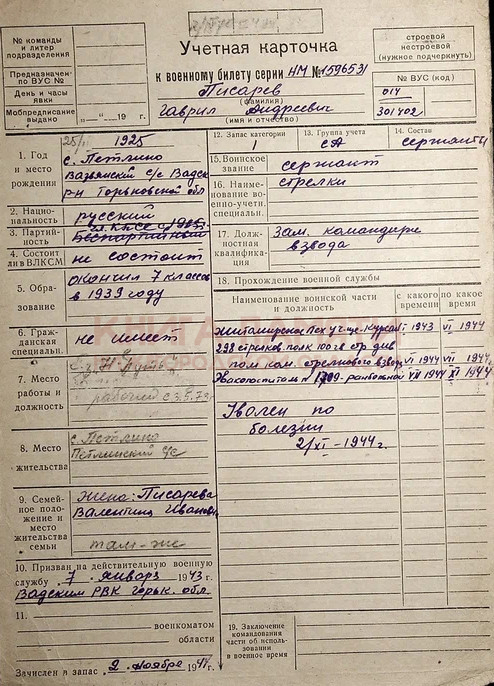 № команды
и литер
подразделения
Предназначен-
по ВУС №
День и часы
явки
Мобпредписание
выдано „—“ 19 г.
Учетная карточка
к военному билету серии НМ № 1596531
Писарев
(фамилия)
Гаврил Андреевич
(имя и отчество)
строевой
нестроевой
(нужное подчеркнуть)
№ ВУС (код)
014
301402
12. Запас категории
1
13. Группа учета
СА
14. Состав
сержанты
1. Год
и место
рождения
1925
с. Петлино
с/с Вадск
р-н Горьковской обл
2. Нацио-
нальность
русский
3. Партий-
ность
Беспартийный
4. Состоит
ли в ВЛКСМ
не состоит
5. Обра-
зование
окончил 7 классов
в 1939 году
6. Граж-
данская
специальн.
не имеет
7. Место
работы и
должность
Путь"
рабочий с 3.5.79
8. Место
жительства
с. Петлино
Петлинский с/с
9. Семей-
ное по-
ложение и
место
жительства
семьи
жена: Писарева
Валентина Ивановн
там-же
10. Призван на действительную военную
службу 7 января 1943 г.
Вадским РВК Горьк. обл.
11.
военкоматом
области
Зачислен в запас 2 ноября 1944 г.
15. Воинское
звание
сержант
16. Наиме-
нование во-
енно-учетн.
специальн.
стрелки
17. Долж-
ностная
квалифика-
ция
Зам. командира
взвода
18. Прохождение военной службы
Наименование воинской части
и должность
с какого
времени
по какое
время
Житомирское пех уч-ще - курсант I 1943 VI 1944
298 стрелков. полк 100й стр див
пом ком. стрелкового взвода VI 1944 VII 1944
Эвакогоспиталь № 1709 - ранбольной VII 1944 XI 1944
Уволен по
болезни
2/XI - 1944 г.
19. Заключение
командования
части об исполь-
зовании
в военное время